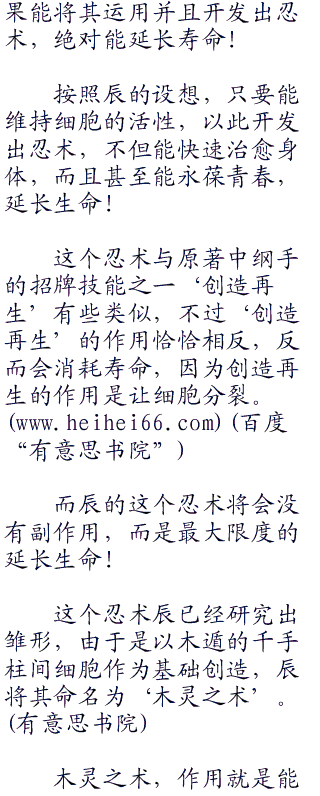 果能将其运用并且开发出忍
术，绝对能延长寿命！
按照辰的设想，只要能
维持细胞的活性，以此开发
出忍术，不但能快速治愈身
体，而且甚至能永葆青春，
延长生命！
这个忍术与原著中纲手
的招牌技能之一‘创造再
生’有些类似，不过‘创造
再生’的作用恰恰相反，反
而会消耗寿命，因为创造再
生的作用是让细胞分裂。
(www.heihei66.com)(百度
“有意思书院”)
而辰的这个忍术将会没
有副作用，而是最大限度的
延长生命！
这个忍术辰已经研究出
雏形，由于是以木遁的千手
柱间细胞作为基础创造，辰
将其命名为‘木灵之术’。
(有意思书院)
木灵之术，作用就是能